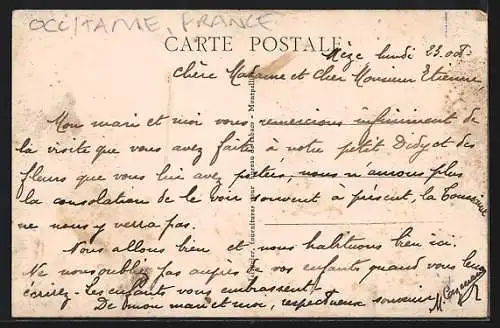 OCCITANIE, FRANCE
CARTE POSTALE
Mèze lundi 23 oct.
Chère Madame et Cher Monsieur Etienne,
Mon mari et moi vous remercions infiniment de
la visite que vous avez faite à notre petit Dédy et des
fleurs que vous lui avez portées, nous n'aurons plus
la consolation de le voir souvent à présent, la Toussaint
ne nous y verra pas.
Nous allons bien et nous habituons bien ici.
Ne nous oubliez pas auprès de vos enfants quand vous leur
écrirez - Les enfants vous embrassent -
De mon mari et moi, respectueux souvenir
M.